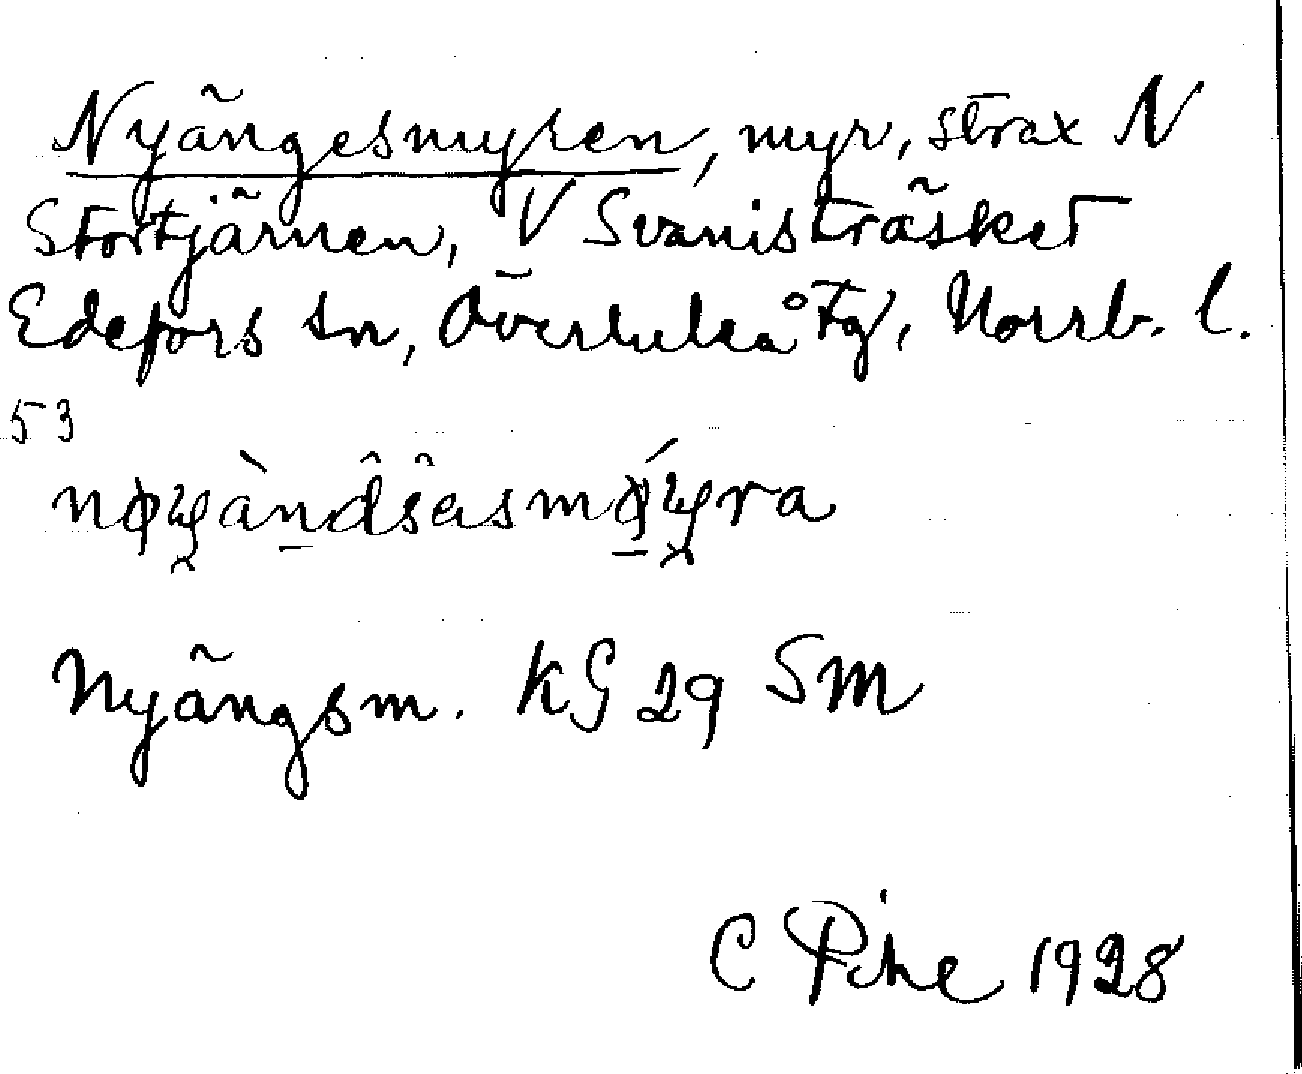 Nyängesmyren, myr, strax N
Stortjärnen, V Svanisträsket
Edefors sn, Överluleå tg, Norrb. l.
53
Nyängsm. KG 29 SM
C Pihe 1928